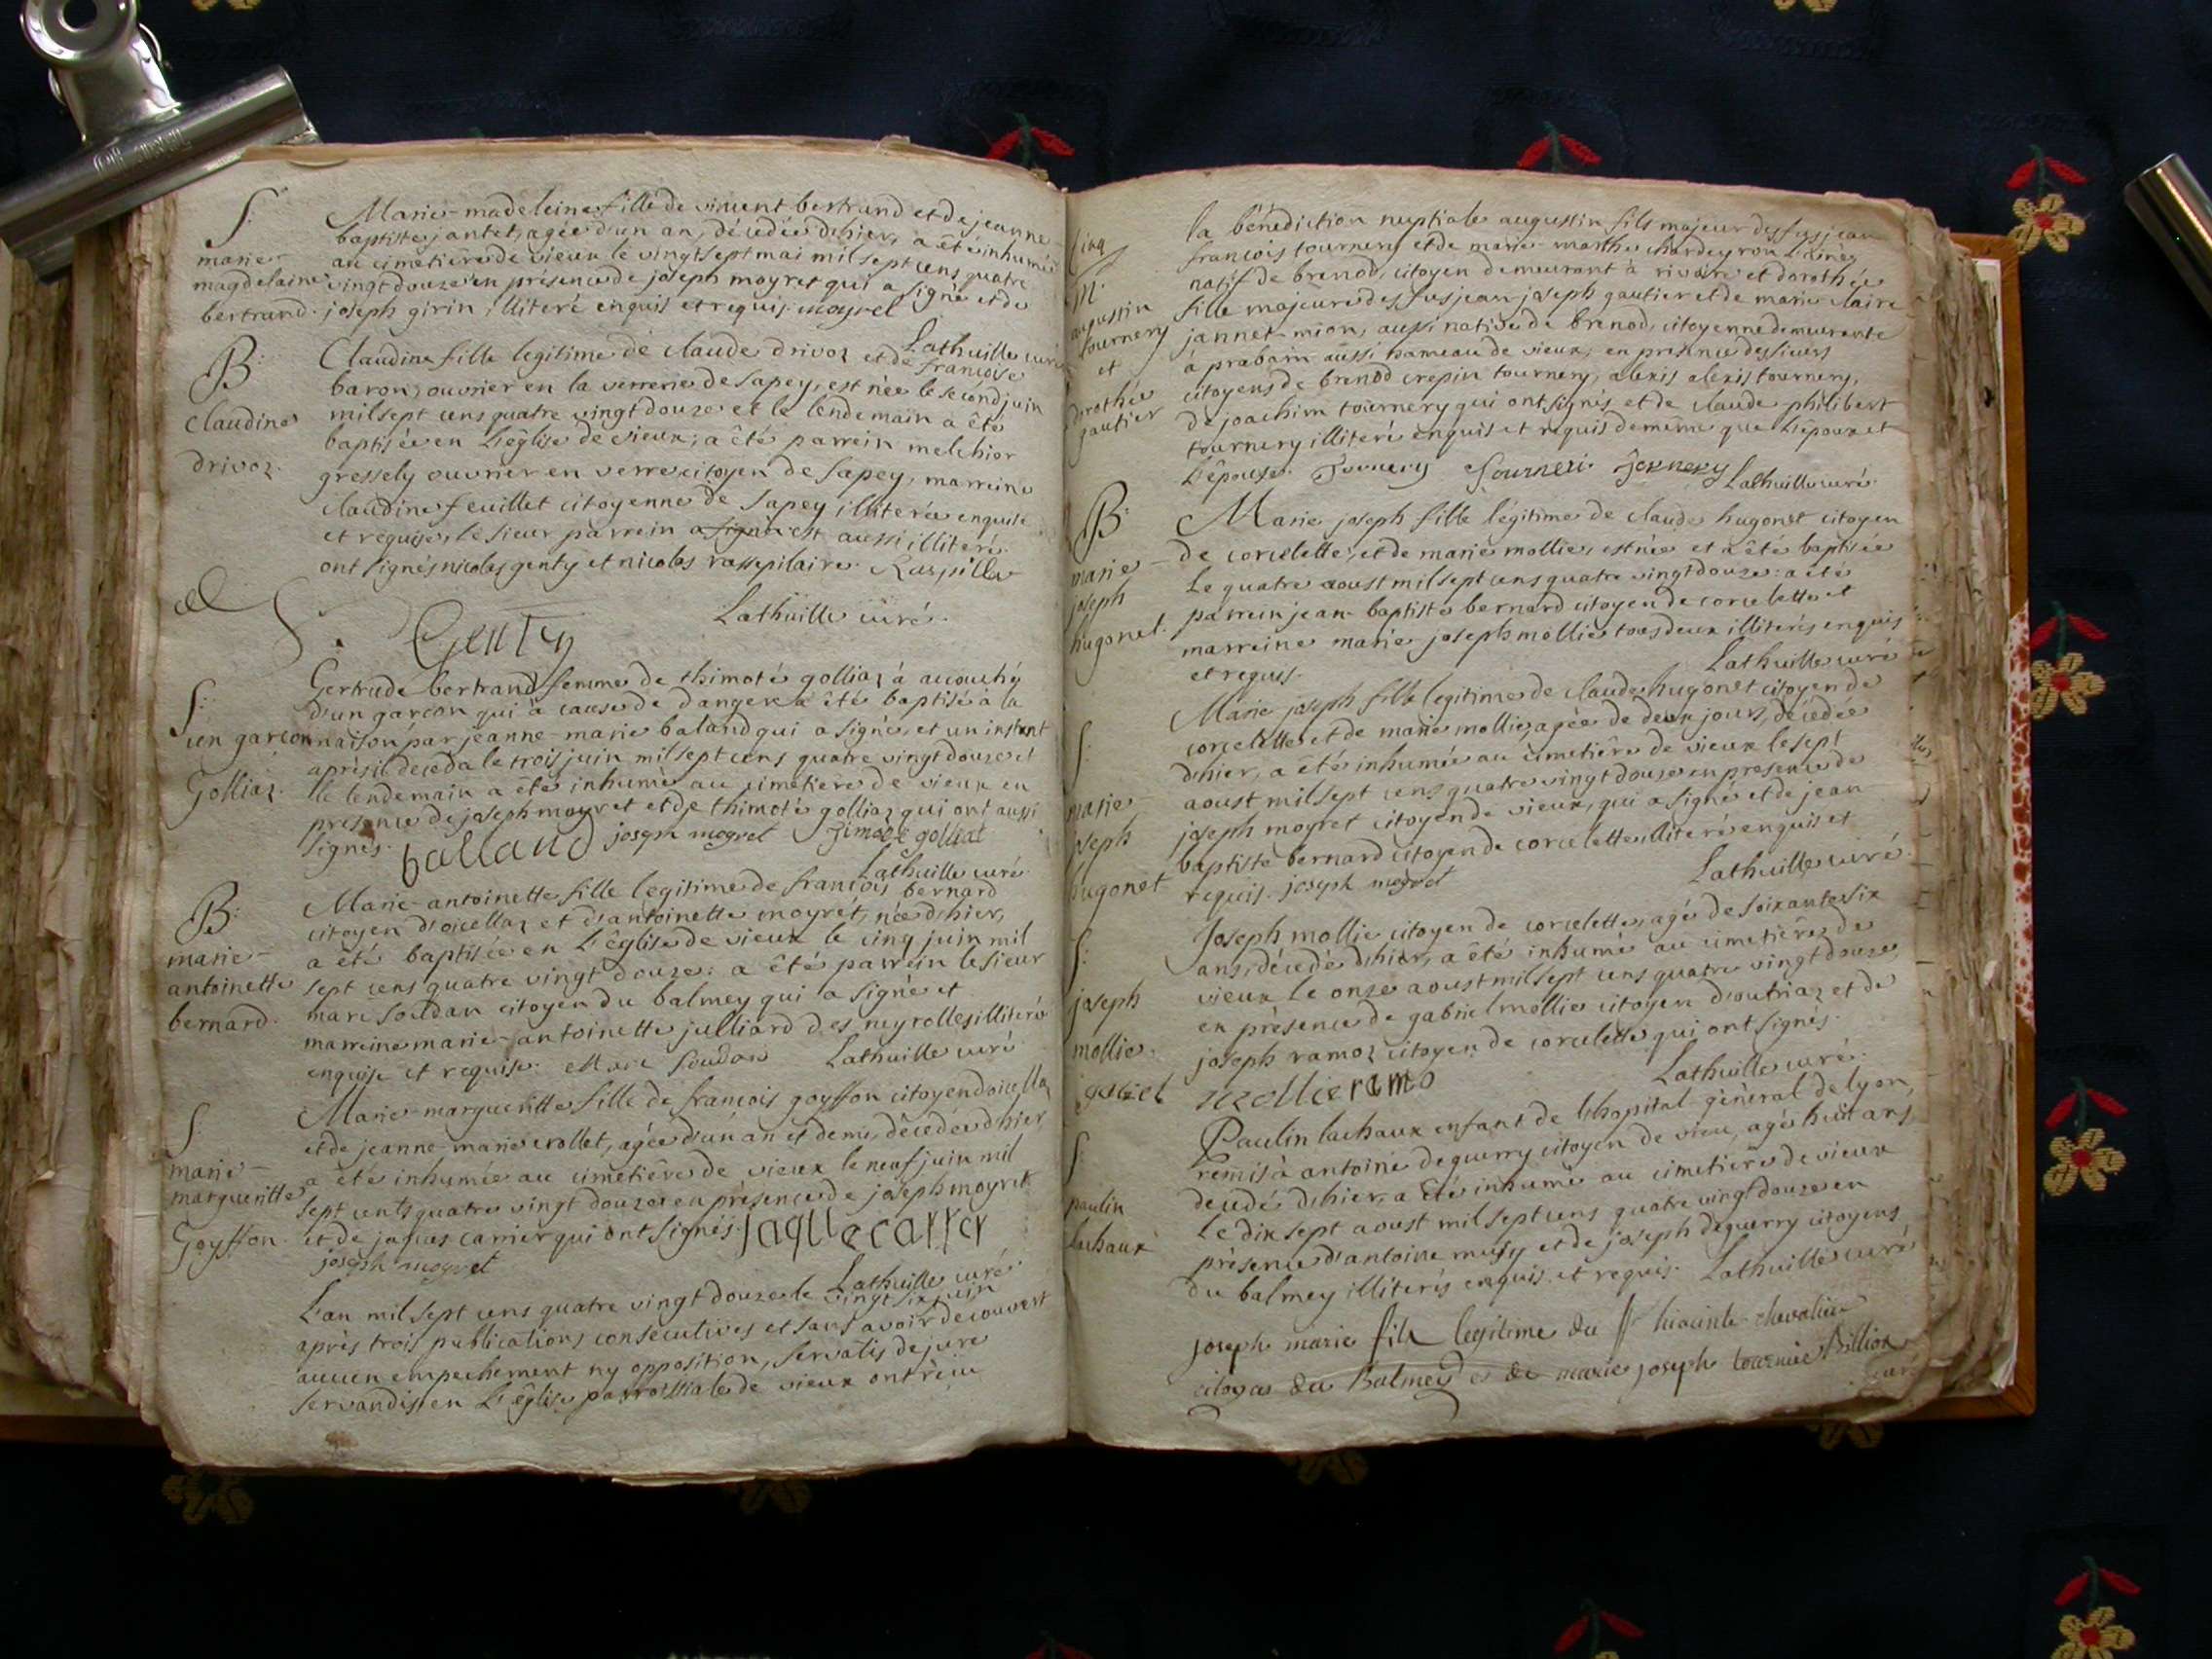 S:
marie-
magdelaine
bertrand.
Marie-madeleine fille de vincent bertrand et de jeanne-
baptiste jantet, agée d'un an, décédée d'hier, a été inhumée
au cimetière de vieux le vingt sept mai mil sept cens quatre
vingt douze en présence de joseph moyret qui a signé et de
joseph girin illiteré enquis et requis. moyret
Lathuille curé
B:
Claudine
drivoz.
Claudine fille legitime de claude drivoz et de françoise
baron, ouvrier en la verrerie de Sapey, est née le second juin
mil sept cens quatre vingt douze et le lendemain a été
baptisée en L'église de vieux; a été parrein melchior
gressely ouvrier en verre citoyen de Sapey, marreine
claudine feuillet citoyenne de Sapey illiterée enquise
et requise, le sieur parrein a signé est aussi illiteré.
ont signés nicolas genty et nicolas rassepilaire. Raspiller
Lathuille curé.
Genty
S:
un garçon
Golliaz.
Gertrude bertrand femme de thimoté golliaz à accouché
d'un garçon qui à cause de danger a été baptisé à la
maison par jeanne-marie baland qui a signé, et un instant
après il deceda le trois juin mil sept cens quatre vingt douze et
le lendemain a été inhumé au cimetière de vieux en
presence de joseph moyret et de thimoté golliaz qui ont aussi
signés. balland joseph moyret Timoté golliat
Lathuille curé.
B:
marie-
antoinette
bernard.
Marie-antoinette fille legitime de françois bernard
citoyen d'oicellaz et d'antoinette moyret, née d'hier,
a été baptisée en L'église de vieux le cinq juin mil
sept cens quatre vingt douze: a été parrein le sieur
marc soudan citoyen du balmey qui a signé et
marreine marie-antoinette julliard des neyrolles illiterée
enquise et requise. Marc Soudan Lathuille curé
S:
marie-
margueritte
Goyffon.
Marie-margueritte fille de françois goyffon citoyen d'oicellaz
et de jeanne-marie crollet, agée d'un an et demi, décédée d'hier,
a été inhumée au cimetière de vieux le neuf juin mil
sept cents quatre vingt douze en présence de joseph moyret
et de jaques carrier qui ont signés. jaque carrer
joseph moyret
Lathuille curé.
L'an mil sept cens quatre vingt douze le vingt six juin
après trois publications consécutives et sans avoir découvert
aucun empechement ny opposition, servatis de jure
servandis, en L'église parroissiale de vieux ont reçu
M:
augustin
tournery
et
dorothée
gautier
la bénédiction nuptiale augustin fils majeur des fus jean
françois tournery et de marie-marthe chardeyron L'ainés
natif de brenod, citoyen demeurant à rivoire et dorothée
fille majeure des fus jean joseph gautier et de marie claire
jannet-mion, aussi native de brenod, citoyenne demeurante
à prabarn aussi hameau de vieux, en presence des sieurs
citoyens de brenod crepin tournery, alexis alexis tournery,
de joachim tournery qui ont signés et de claude-philibert
tournery illiteré enquis et requis de même que L'époux et
L'épouse. Tournery Tourneri Tornery Lathuille curé.
B:
marie-
joseph
hugonet.
Marie joseph fille légitime de claude hugonet citoyen
de corcelette, et de marie mollie, est née et a été baptisée
Le quatre aoust mil sept cens quatre vingt douze: a été
parrein jean-baptiste bernard citoyen de corcelette et
marreine marie-joseph mollie tous deux illiterés enquis
et requis.
Lathuille curé
S:
marie
joseph
hugonet
Marie joseph fille legitime de claude hugonet citoyen de
corcelette et de marie mollie agée de deux jours, décédée
d'hier, a été inhumée au cimetière de vieux le sept
aoust mil sept cens quatre vingt douze en presence de
joseph moyret citoyen de vieux, qui a signé et de jean
baptiste bernard citoyen de corcelette illiteré enquis et
requis. joseph moyret
Lathuille curé.
S:
joseph
mollie.
Joseph mollie citoyen de corcelette, agé de soixante six
ans, décédé d'hier, a été inhumé au cimetière de
vieux Le onze aoust mil sept cens quatre vingt douze,
en présence de gabriel mollie citoyen d'outriaz et de
joseph ramoz citoyen de corcelette qui ont signés.
gabiel mollie ramo
Lathuille curé.
S:
paulin
lachaux
Paulin lachaux enfant de L'hopital général de lyon,
remis à antoine deguerry citoyen de vieu, agé huit ans,
décédé d'hier, a été inhumé au cimetière de vieux
Le dix sept aoust mil sept cens quatre vingt douze en
présence d'antoine musy et de joseph deguerry citoyens
du balmey illiterés enquis et requis. Lathuille curé
joseph marie fils legitime du Sr hiacinte chevalier
citoyen du Balmey et de marie joseph tournier Billion
curé